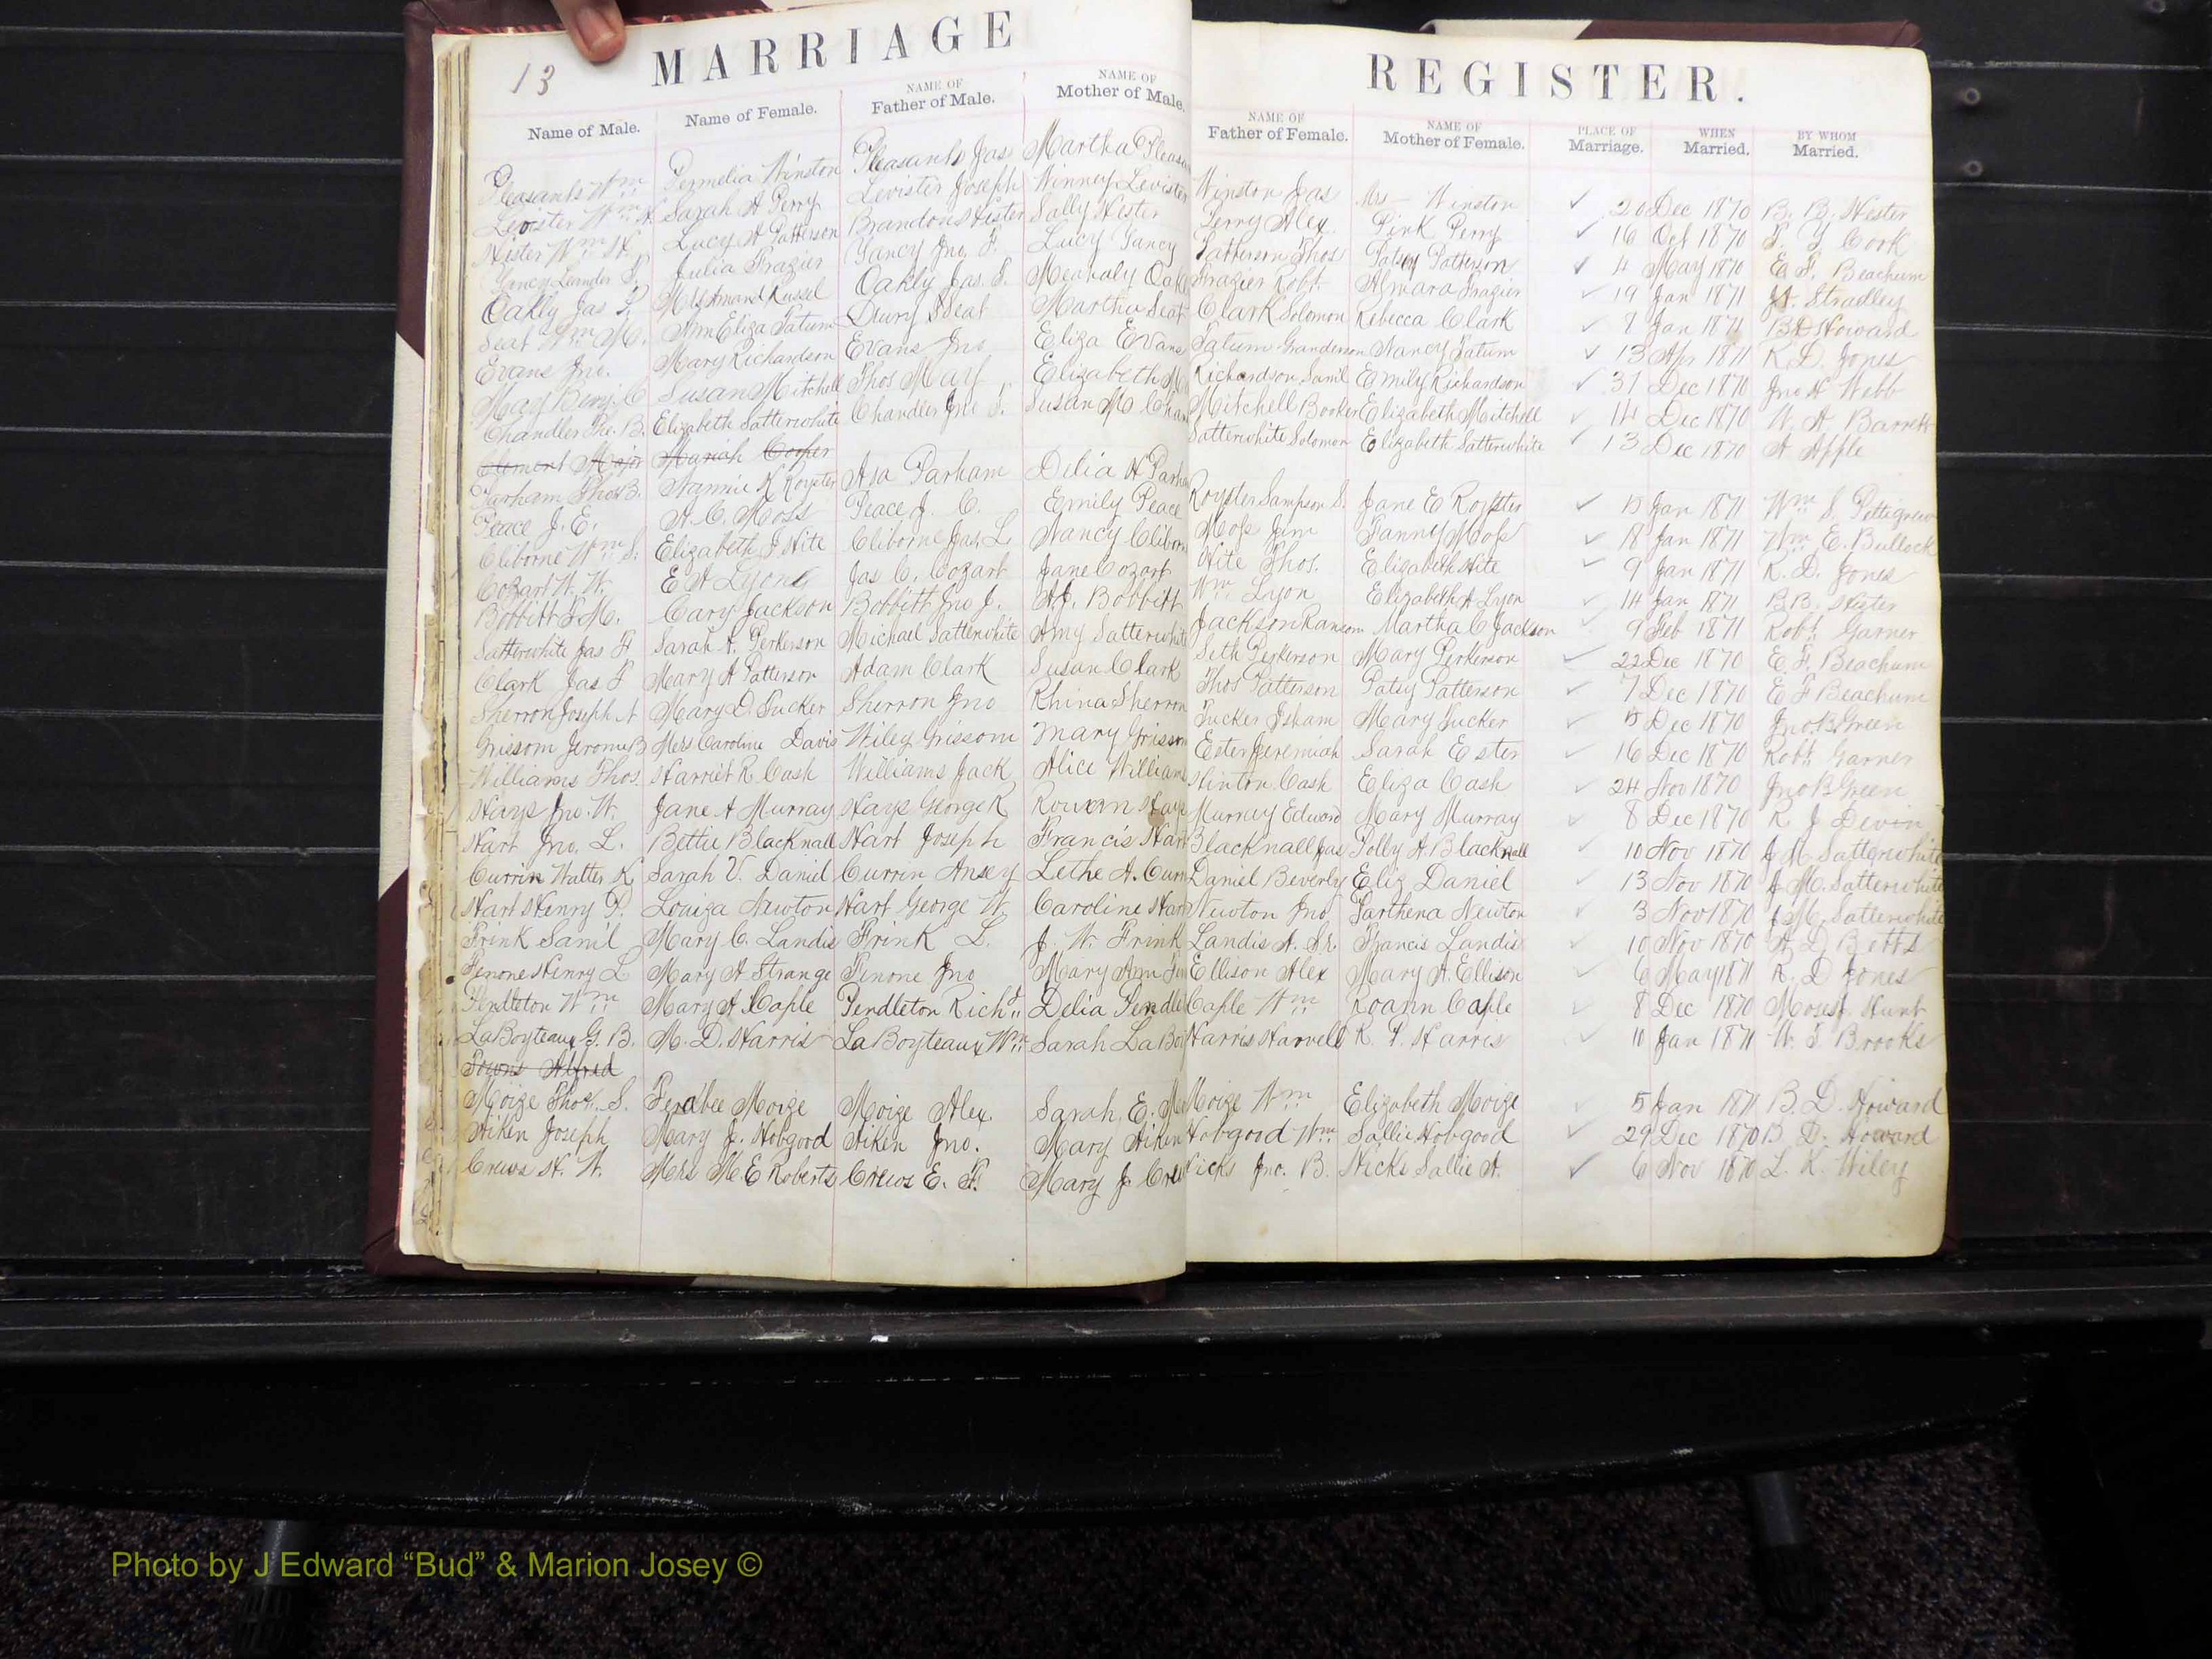 13 MARRIAGE REGISTER.
Name of Male. Name of Female. NAME OF Father of Male. NAME OF Mother of Male. NAME OF Father of Female. NAME OF Mother of Female. PLACE OF Marriage. WHEN Married. BY WHOM Married.
Pleasants Wm Permelia Winston Pleasants Jas Martha Pleasa Winston Jas Mrs Winston ✓ 20 Dec 1870 B. B. Hester
Levister Wm H Sarah A Perry Levister Joseph Winney Levister Perry Alex Pink Perry ✓ 16 Oct 1870 Cook
Hester Wm H. Lucy A Patterson Brandon Hester Sally Hester Patterson Thos Patsy Patterson ✓ 4 May 1870 E. F. Beachum
Yancy Leander Julia Frazier Yancy Jno. F. Lucy Yancy Frazier Robt. Frazier ✓ 19 Jan 1871 Stradley
Oakly Jas S. Mrs Amand Russel Oakly Jas. S. Oak Clark Solomon Rebecca Clark ✓ Jan 1871 B D Howard
Seat Wm M. Ann Eliza Tatum Drury Seat Martha Seat Tatum Granderson Nancy Tatum ✓ 13 Apr 1871 R. D. Jones
Evans Jno. Mary Richardson Evans Jno Eliza Evans Richardson Saml Emily Richardson ✓ 31 Dec 1870 Jno H Webb
May Benj. C Susan Mitchell Thos May Elizabeth M Mitchell Booker Elizabeth Mitchell ✓ 14 Dec 1870 W. A. Barrett
Chandler B. Elizabeth Satterwhite Chandler Jno S. Susan M Chan Satterwhite Solomon Elizabeth Satterwhite ✓ 13 Dec 1870 A Apple
Clement Major Mariah Cooper
Parham Thos B. Nannie K Royster Asa Parham Delia H Parha Royster Sampson S. Jane E Royster ✓ 15 Jan 1871 Wm S. Pettigrew
Peace J. E. A. C. Moss Peace J. C. Emily Peace Moss Jim Fanny Moss ✓ 18 Jan 1871 Wm E. Bullock
Cliborne Wm S. Elizabeth J Hite Cliborne Jas. L Nancy Clibor Hite Thos. Elizabeth Hite ✓ 9 Jan 1871 R. D. Jones
Cozart W. W. E A Lyon Jas C. Cozart Jane Cozart Wm Lyon Elizabeth A Lyon ✓ 14 Jan 1871 B B. Hester
Bobbitt M. Cary Jackson Bobbitt Jno J. A. J. Bobbitt Jackson Ransom Martha C Jackson ✓ 9 Feb 1871 Robt Garner
Satterwhite Jas F Sarah A. Perkerson Michael Satterwhite Amy Satterwhite Seth Perkerson Mary Perkerson ✓ 22 Dec 1870 E. F. Beachum
Clark Jas F Mary A Patterson Adam Clark Susan Clark Thos Patterson Patsy Patterson ✓ 7 Dec 1870 E F Beachum
Sherron Joseph A Mary D. Tucker Sherron Jno Rhina Sherron Tucker Isham Mary Tucker ✓ 15 Dec 1870 Jno. B. Green
Grissom Jerome B Mrs Caroline Davis Wiley Grissom Mary Grissom Ester Jeremiah Sarah Ester ✓ 16 Dec 1870 Robt Garner
Williams Thos. Harriet R. Cash Williams Jack Alice William Hinton Cash Eliza Cash ✓ 24 Nov 1870 Jno B Green
Hays Jno. W. Jane A Murray Hays George R Rowan Hays Murray Edward Mary Murray ✓ 8 Dec 1870 R J Devin
Hart Jno. L. Bettie Blacknall Hart Joseph Francis Hart Blacknall Jas Polly A. Blacknall ✓ 10 Nov 1870 J M Satterwhite
Currin Walter K Sarah V. Daniel Currin Ansey Lethe A. Curri Daniel Beverly Eliz Daniel ✓ 13 Nov 1870 J. M. Satterwhite
Hart Henry P. Louiza Newton Hart George W Caroline Har Newton Jno Parthena Newton ✓ 3 Nov 1870 J M. Satterwhite
Frink Saml Mary C. Landis Frink L. J. W. Frink Landis A. Sr. Francis Landis ✓ 10 Nov 1870 A. D Betts
Penone Henry L Mary A Strange Penone Jno Mary Ann Ellison Alex Mary A. Ellison ✓ 6 May 1871 R. D Jones
Pendleton Wm Mary A. Caple Pendleton Richd Delia Pendle Caple Wm Roann Caple ✓ 8 Dec 1870 Moses Hunt
LaBoyteaux G. B. M. D. Harris LaBoyteaux Wm Sarah LaBoy Harris Harvell R. P. Harris ✓ 11 Jan 1871 W. Brooks
Towns Alfred
Moize Thos. S. Ferabee Moize Moize Alex. Sarah E. M Moize Wm Elizabeth Moize ✓ 5 Jan 1871 B. D. Howard
Aiken Joseph Mary J. Hobgood Aiken Jno. Mary Aiken Hobgood Wm Sallie Hobgood ✓ 29 Dec 1870 B. D. Howard
Crews H. W. Mrs M. E Roberts Crews E. F. Mary J. Crew Hicks Jno. B. Hicks Sallie A. ✓ 6 Nov 1870 L. K. Wiley
Photo by J Edward “Bud” & Marion Josey ©